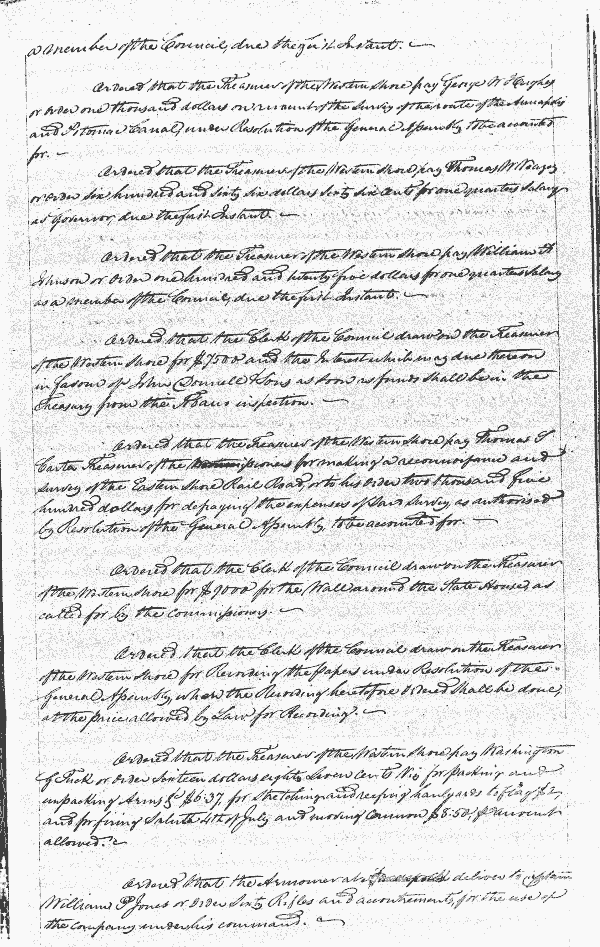 a member of the Council, due the first Instant.
Ordered that the Treasurer of the Western Shore pay George W Hughes
or order one thousand dollars on account of the Survey of the route of the Annapolis
and Potomac Canal, under Resolution of the General Assembly, to be accounted
for.
Ordered that the Treasurer of the Western Shore pay Thomas W Veazey
or order six hundred and sixty six dollars sixty six cents for one quarters Salary
as Governor, due the first Instant.
Ordered that the Treasurer of the Western Shore pay William H
Johnson or order one hundred and twenty five dollars for one quarters Salary
as a member of the Council, due the first Instant.
Ordered that the Clerk of the Council draw on the Treasurer
of the Western Shore for $7500 and the Interest which may due thereon
in favour of John Donnell & Sons as soon as funds shall be in the
Treasury from the Tobacco inspection.
Ordered that the Treasurer of the Western Shore pay Thomas S
Carter Treasurer of the Commissioners for making a reconnoisance and
survey of the Eastern Shore Rail Road, or to his order two thousand five
hundred dollars for defraying the expenses of said Survey as authorised
by Resolution of the General Assembly, to be accounted for.
Ordered that the Clerk of the Council draw on the Treasurer
of the Western Shore for $9000 for the Wall around the State House, as
called for by the Commissioners.
Ordered that the Clerk of the Council draw on the Treasurer
of the Western Shore for Recording the papers under Resolution of the
General Assembly, when the Recording heretofore Ordered shall be done,
at the price allowed by Law for Recording.
Ordered that the Treasurer of the Western Shore pay Washington
G Tuck or order Sixteen dollars eighty seven cents Viz for packing and
unpacking Arms &c $6.37, for stretching and reefing haulyards to flag $2
and for firing Salute 4th of July and moving Cannon $8.50, pr account
allowed.
Ordered that the Armourer at deliver to Captain
William P Jones or order Sixty Rifles and accoutrements, for the use of
the company under his command.